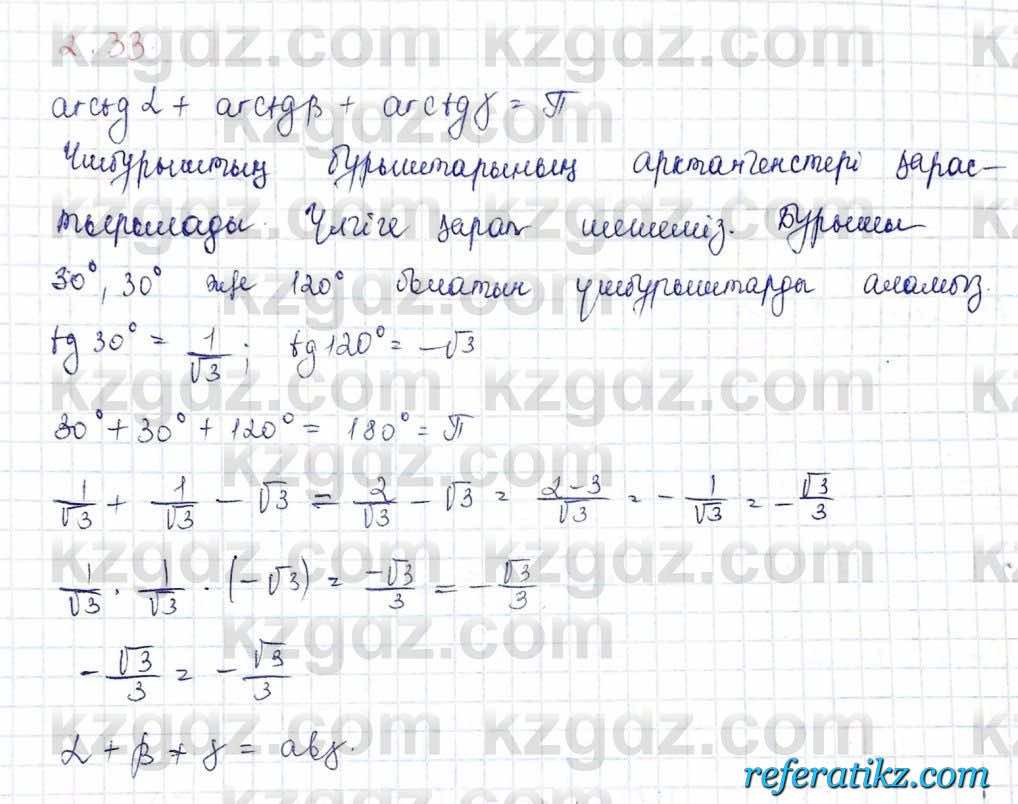 2.33
arctg α + arctg β + arctg γ = π
Үшбұрыштың бұрыштарының арктангенстері қарас-
тырылады. Үлгіге қарап шешеміз. Бұрышы
30°, 30° және 120° болатын үшбұрыштарды аламыз.
tg 30° = 1/√3 ; tg 120° = -√3
30° + 30° + 120° = 180° = π
1/√3 + 1/√3 - √3 = 2/√3 - √3 = (2-3)/√3 = - 1/√3 = - √3/3
1/√3 · 1/√3 · (-√3) = -√3/3 = - √3/3
- √3/3 = - √3/3
α + β + γ = αβγ.
kzgdz.com
referatikz.com